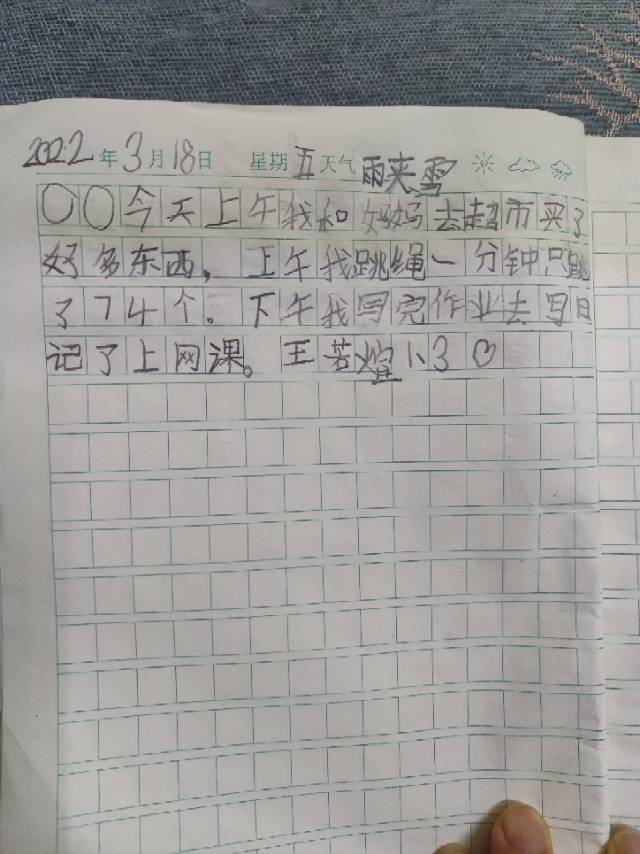 2022年3月18日 星期五天气雨夹雪
〇〇今天上午我和妈妈去超市买了
好多东西,上午我跳绳一分钟只跳
了74个。下午我写完作业去写日
记了上网课。王若煊1、3♡